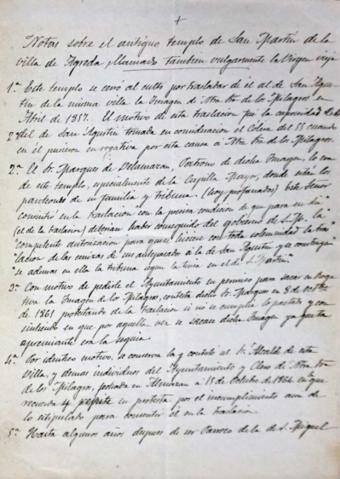 Notas sobre el antiguo templo de San Martin de la
villa de Agreda, llamado tambien vulgarmente la Virgen vieja
1.º Este templo se cerró al culto por trasladar de él al de San Agus-
tin de la misma villa la Imagen de Ntra. Sra. de los Milagros en
Abril de 1857. El motivo de esta traslacion por la
del de San Agustin tomada en consideracion el Cólera del 55 cuando
en él pusieron en rogativa por esta causa a Ntra. Sra. de los Milagros.
2.º El Sr. Marques de Velamazan, Patrono de dicha Imagen, lo era
de este templo, especialmente de la Capilla Mayor, donde están los
panteones de su familia y tribuna (hoy profanados) este Señor
consintió en la traslacion con la precisa condicion de que para su dia
(el de la traslacion) deberian haber conseguido del gobierno de S. M. la
competente autorizacion para que se hiciese con toda solemnidad la tras-
lacion de las cenizas de sus antepasados á la de San Agustin y se
se ademas en ella la tribuna segun la tenia en el de S. Martin.
3.º Con motivo de pedirle el Ayuntamiento su permiso para sacar en Roga-
tiva la Imagen de los Milagros, contesta dicho Sr. Patrono en 8 de
de 1861 protestando de la traslacion si no se cumplia lo pactado y con-
sintiendo en que por aquella vez se sacase dicha Imagen ya que tan
apremiante era la sequia.
4.º Por identico motivo, se conserva la q contestó al Sr. Alcalde de esta
Villa, y demas individuos del Ayuntamiento y Clero de Ntra. Sra.
de los Milagros, fechada en Almazan a 15 de Octubre de 1866 en que
recuerda y repite su protesta por el incumplimiento aun de
lo estipulado para consentir él en la traslacion.
5.º Hasta algunos años despues de ser Parroco de la de S. Miguel